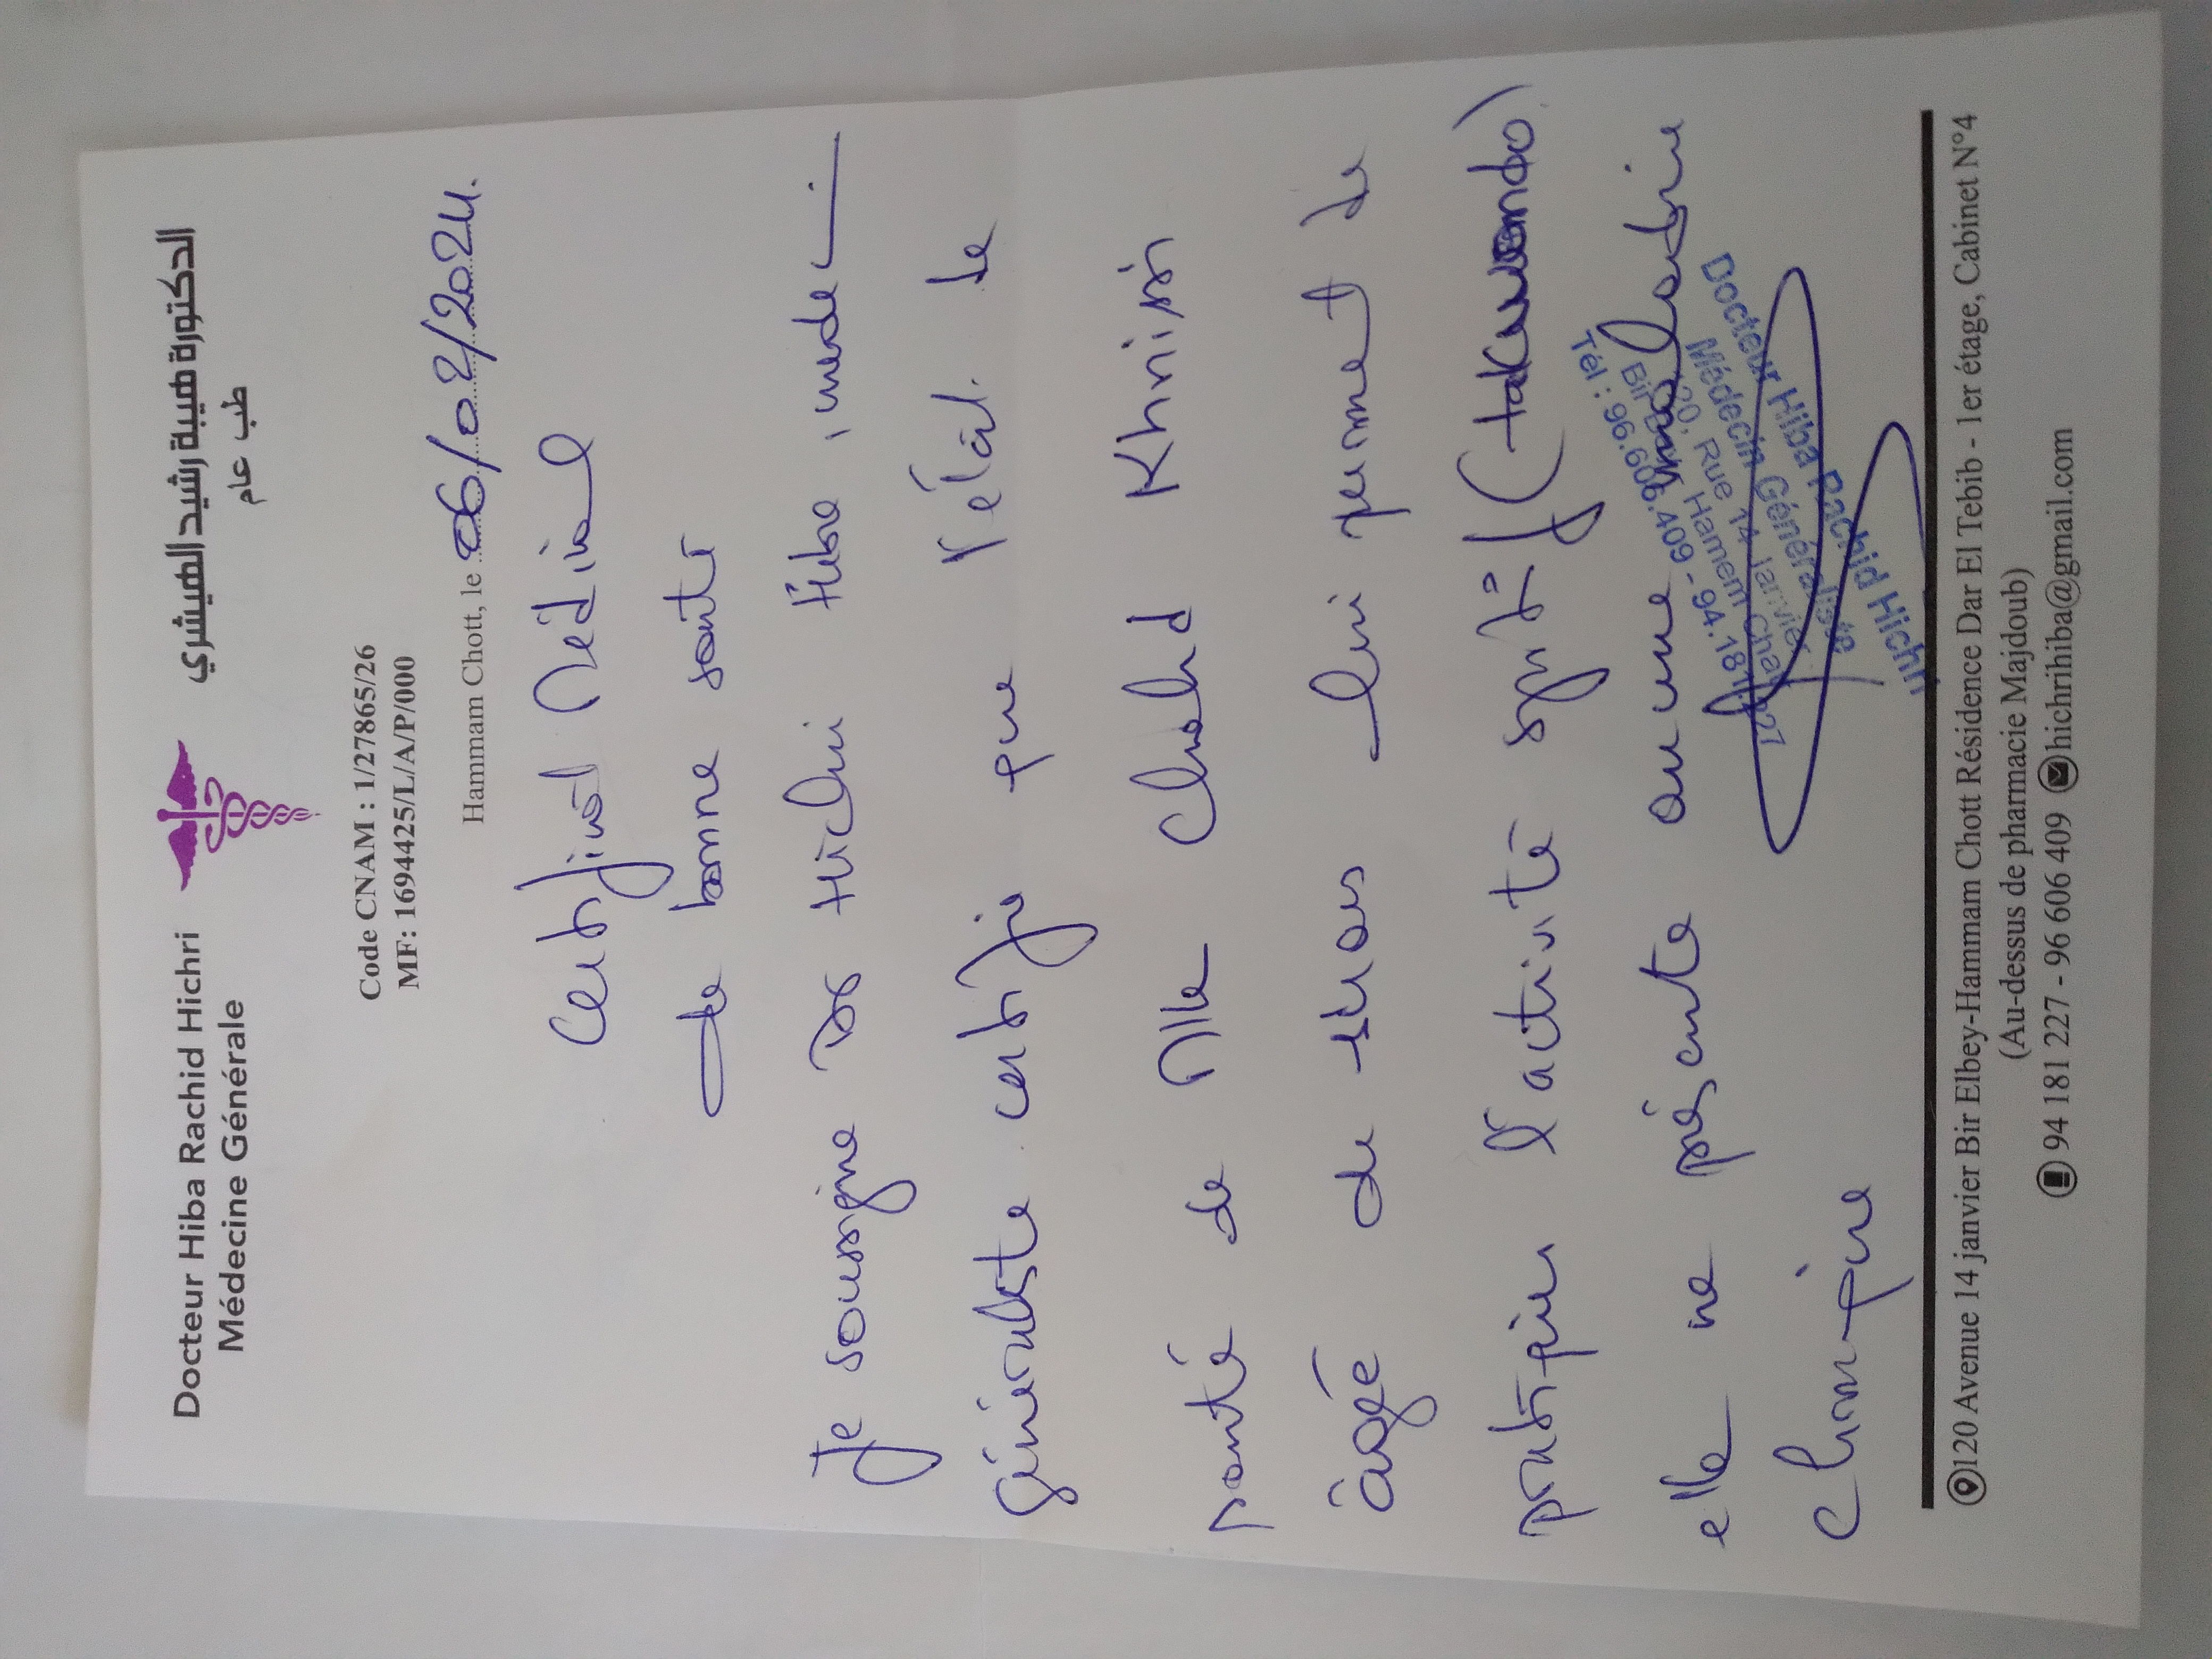 Docteur Hiba Rachid Hichri
Médecine Générale
الدكتورة هيبة رشيد الهيشري
طب عام
Code CNAM : 1/27865/26
MF: 1694425/L/A/P/000
Hammam Chott, le 06/02/2024.
Certificat Médical
de bonne santé
Je soussigné Dr Hichri Hiba, médeci-
généraliste certifie que l'état de
santé de Mlle Khnissi
âgé de ans lui permet de
pratiquer l'activité sprti (takwondo)
elle ne présente aucune maladie
chronique
Docteur Hiba Rachid Hichri
Médecin Généraliste
120, Rue 14 Janvier
Bir Hammam Chott
Tél : 96.606.409 - 94.181.227
120 Avenue 14 janvier Bir Elbey-Hammam Chott Résidence Dar El Tebib - 1er étage, Cabinet N°4
(Au-dessus de pharmacie Majdoub)
94 181 227 - 96 606 409 hichrihiba@gmail.com